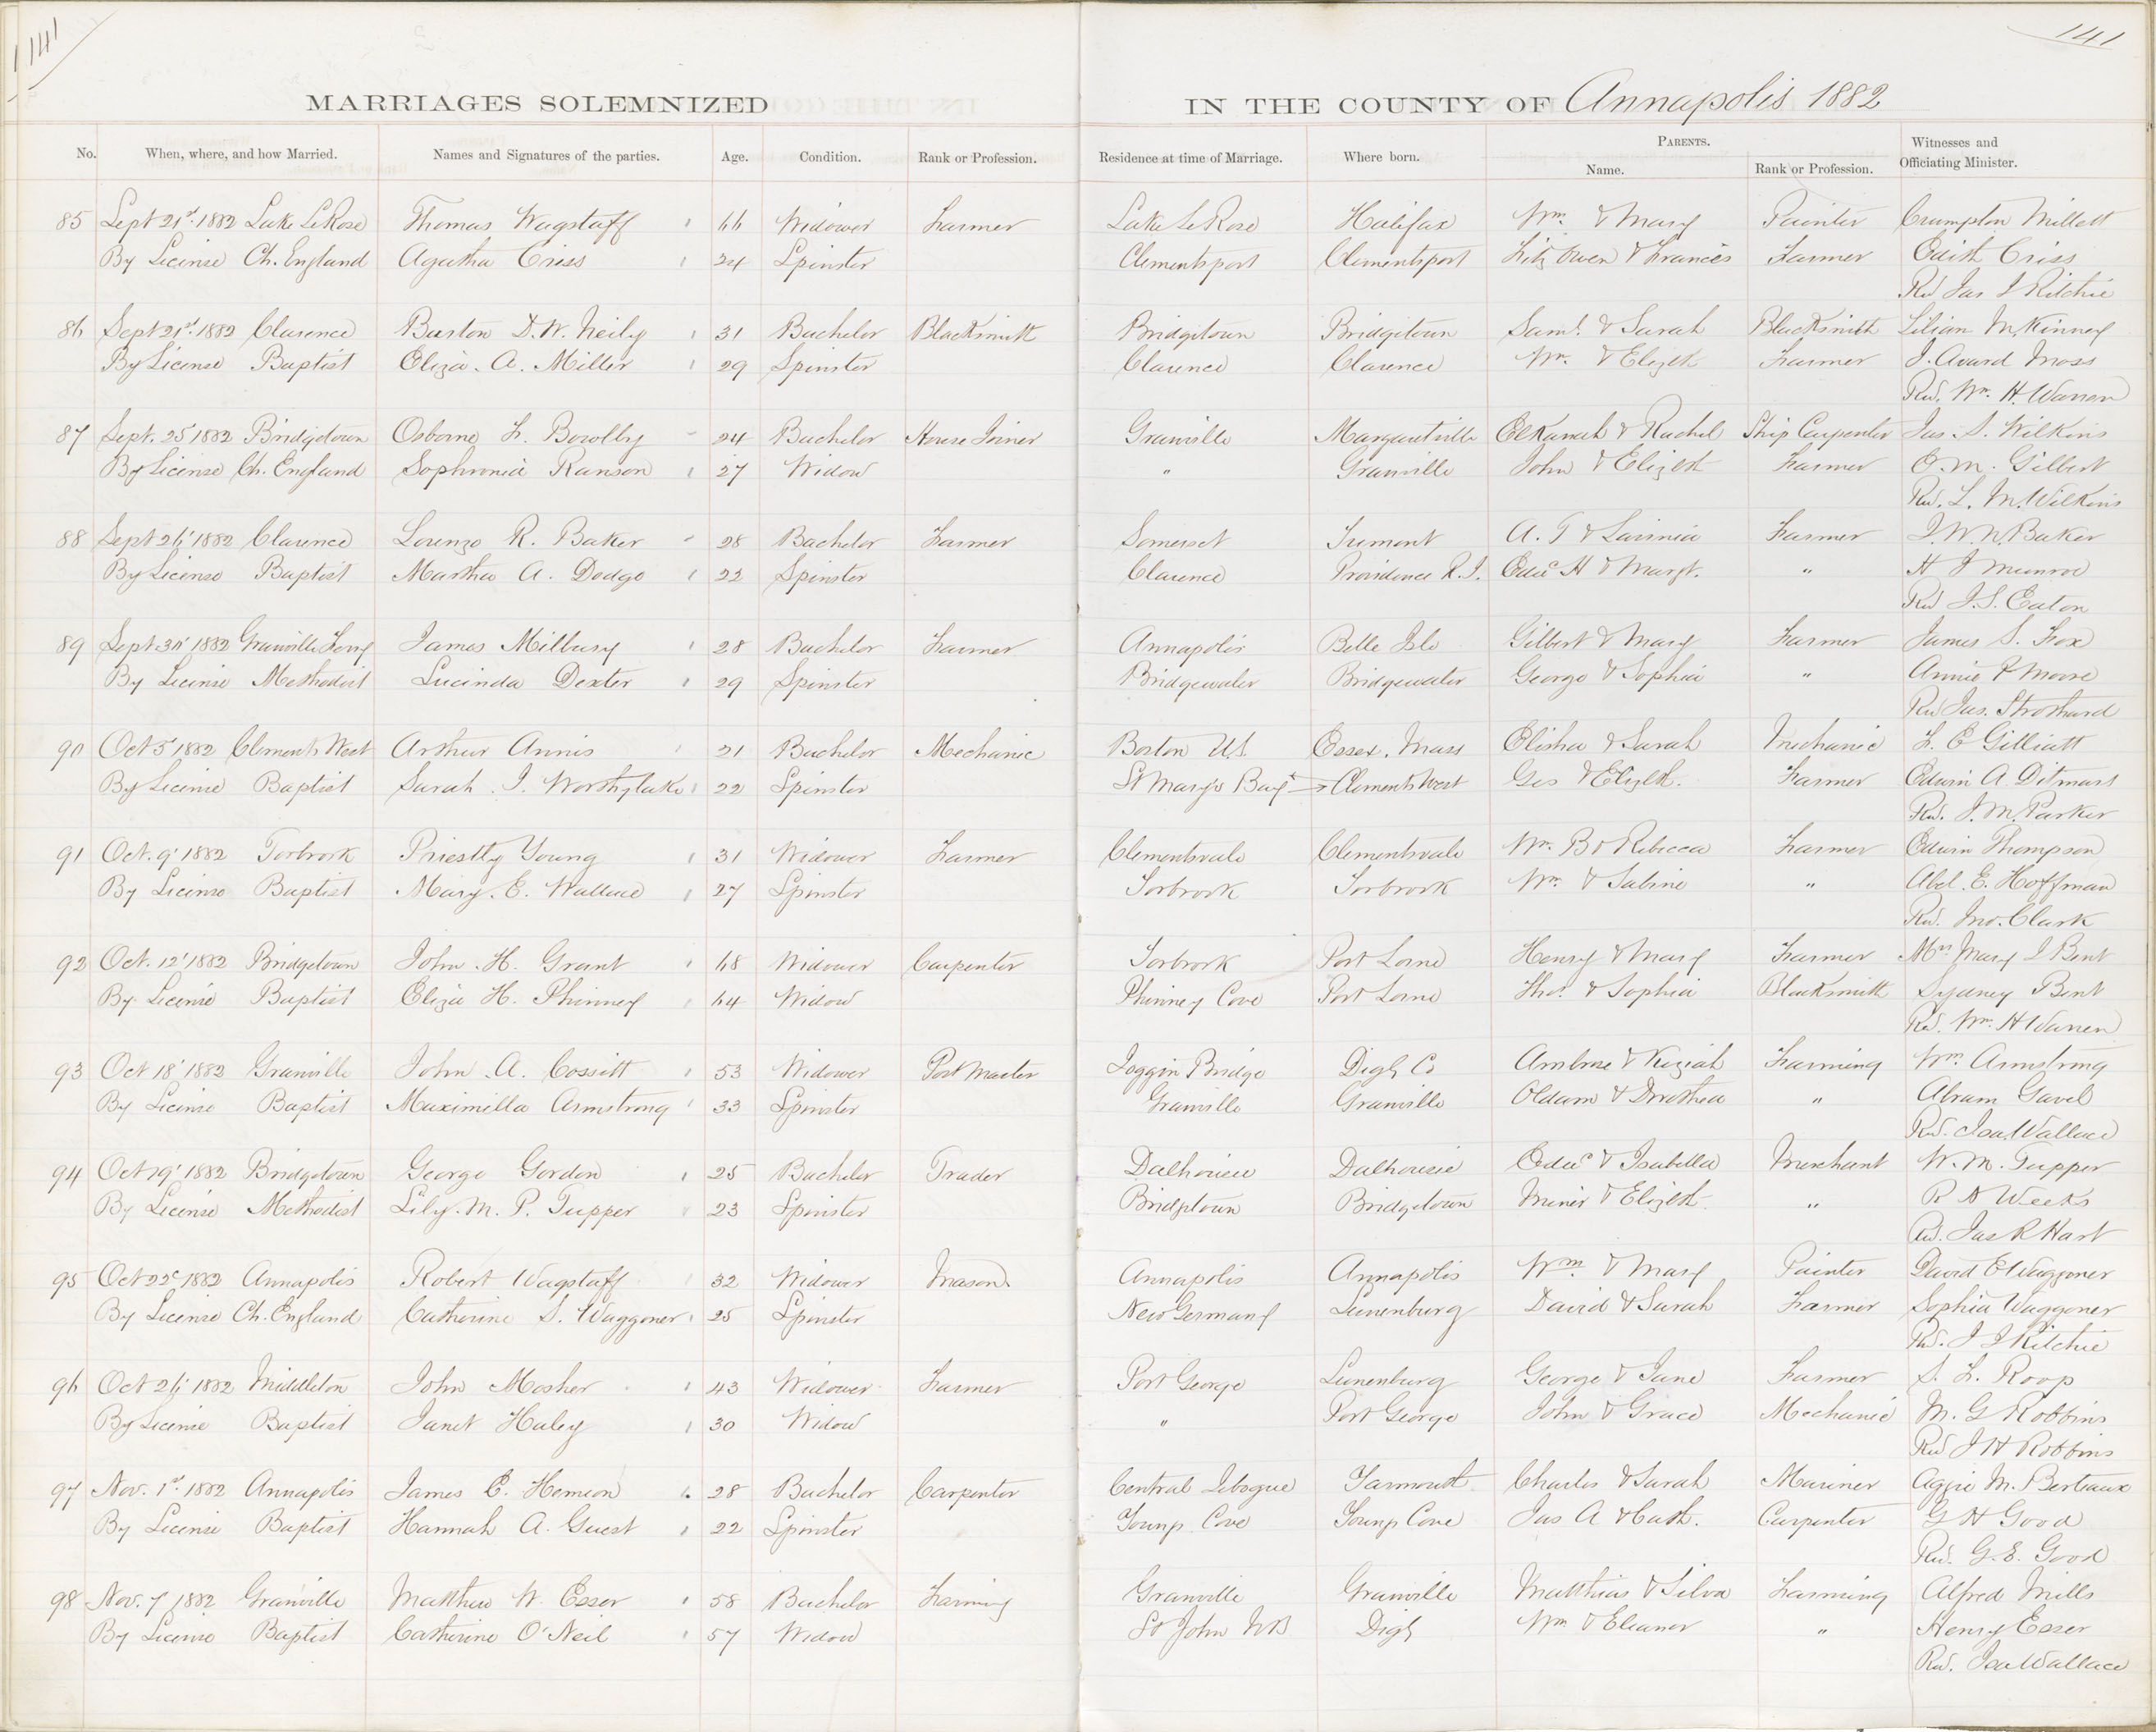 141
141
MARRIAGES SOLEMNIZED IN THE COUNTY OF Annapolis 1882
No. When, where, and how Married. Names and Signatures of the parties. Age. Condition. Rank or Profession. Residence at time of Marriage. Where born. PARENTS. Name. Rank or Profession. Witnesses and Officiating Minister.
85 Sept 21st 1882 Lake LeRose Thomas Wagstaff 66 Widower Farmer Lake LeRose Halifax Wm. & Mary Painter Crumpton Millett
By License Ch. England Agatha Criss 24 Spinster Clementsport Clementsport Fitz Owen & Frances Farmer Edith Criss
Rev Jas J Ritchie
86 Sept 21st 1882 Clarence Burton D. W. Neily 31 Bachelor Blacksmith Bridgetown Bridgetown Saml. & Sarah Blacksmith Lilian McKinney
By License Baptist Eliza. A. Miller 29 Spinster Clarence Clarence Wm. & Elizth Farmer J. Avard Moss
Rev. Wm. H. Warren
87 Sept. 25 1882 Bridgetown Osborne L. Bowlby 24 Bachelor House Joiner Granville Margaretville Elkanah & Rachel Ship Carpenter Jas. S. Wilkins
By License Ch. England Sophronia Ranson 27 Widow " Granville John & Elizbth Farmer O. M. Gilbert
Rev. L. M. Wilkins
88 Sept 26 1882 Clarence Lorenzo R. Baker 28 Bachelor Farmer Somerset Tremont A. T & Lavinia Farmer J. W. N. Baker
By License Baptist Martha A. Dodge 22 Spinster Clarence Providence R. I. Edwd H & Margt. " H J Munroe
Rev J. S. Eaton
89 Sept 30 1882 Granville Ferry James Milbury 28 Bachelor Farmer Annapolis Belle Isle Gilbert & Mary Farmer James S. Fox
By License Methodist Lucinda Dexter 29 Spinster Bridgewater Bridgewater George & Sophia " Annie P Moore
Rev Jas. Strothard
90 Oct 5 1882 Clements West Arthur Annis 21 Bachelor Mechanic Boston U.S. Essex, Mass Elisha & Sarah Mechanic L. E Gilliatt
By License Baptist Sarah J. Worthylake 22 Spinster St Mary's Bay Clements West Geo & Elizth. Farmer Edwin A. Ditmars
Rev. J. M. Parker
91 Oct. 9 1882 Torbrook Priestly Young 31 Widower Farmer Clementsvale Clementsvale Wm. B & Rebecca Farmer Edwin Thompson
By License Baptist Mary. E. Wallace 27 Spinster Torbrook Torbrook Wm. & Sabine " Abel. E. Hoffman
Rev. Jno. Clark
92 Oct. 12 1882 Bridgetown John. H. Grant 68 Widower Carpenter Torbrook Port Lorne Henry & Mary Farmer Mrs Mary I Bent
By License Baptist Eliza H. Phinney 64 Widow Phinney Cove Port Lorne Thos. & Sophia Blacksmith Sydney Bent
Rev. Wm. H Warren
93 Oct 18 1882 Granville John. A. Cossitt 53 Widower Post Master Joggin Bridge Digby Co Ambrose & Keziah Farming Wm. Armstrong
By License Baptist Maximilla Armstrong 33 Spinster Granville Granville Oldam & Drothea " Abram Gavel
Rev. Isa. Wallace
94 Oct 19 1882 Bridgetown George Gordon 25 Bachelor Trader Dalhousie Dalhousie Edwd & Isabella Merchant W. M. Tupper
By License Methodist Lily. M. P. Tupper 23 Spinster Bridgetown Bridgetown Miner & Elizbth. " R D Weeks
Rev. Jas R Hart
95 Oct 22d 1882 Annapolis Robert Wagstaff 32 Widower Mason Annapolis Annapolis Wm. & Mary Painter David E Waggoner
By License Ch. England Catherine S. Waggoner 25 Spinster New Germany Lunenburg David & Sarah Farmer Sophia Waggoner
Rev. J J Ritchie
96 Oct 26 1882 Middleton John Mosher 43 Widower Farmer Port George Lunenburg George & Jane Farmer S. L. Roop
By License Baptist Janet Haley 30 Widow " Port George John & Grace Mechanic M. G Robbins
Rev J H Robbins
97 Nov. 1st 1882 Annapolis James E. Hemeon 28 Bachelor Carpenter Central Chebogue Yarmouth Charles & Sarah Mariner Aggie M. Berteaux
By License Baptist Hannah A. Guest 22 Spinster Youngs Cove Youngs Cove Jas A & Cath. Carpenter G H Good
Rev. G. E. Good
98 Nov. 7 1882 Granville Matthew W. Esser 58 Bachelor Farming Granville Granville Matthias & Silva Farming Alfred Mills
By License Baptist Catherine O'Neil 57 Widow St John NB Digby Wm & Eleanor " Henry Esser
Rev. Isa Wallace